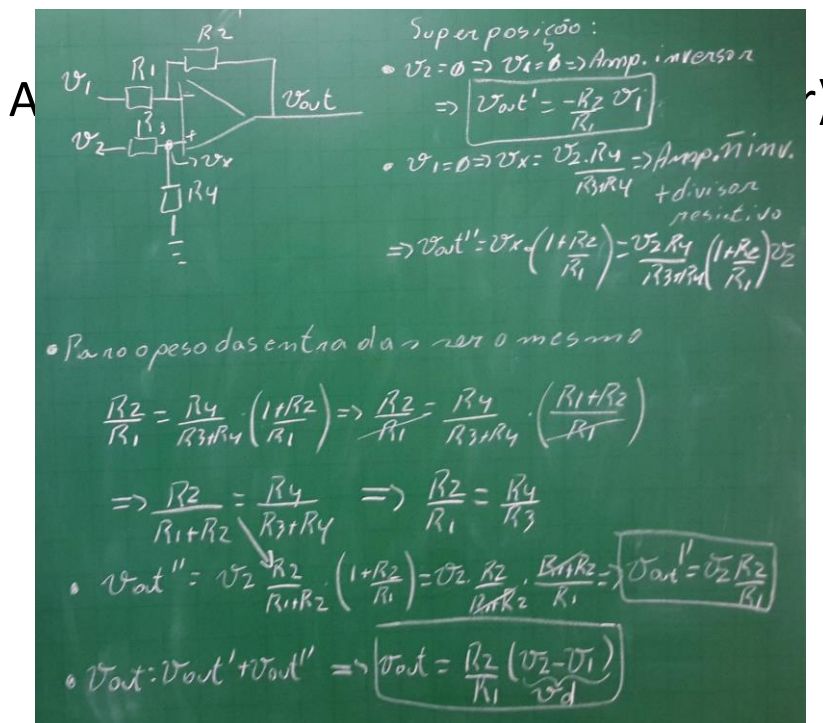 A
r)
R2
v1 R1 -
vout
v2 R3 +
vx
R4
Superposição:
• v2=0 => vx=0 => Amp. inversor
=> vout' = -R2/R1 vi
• v1=0 => vx = v2.R4/R3+R4 => Amp. ñ inv.
+divisor
resistivo
=> vout'' = vx.(1+R2/R1) = v2R4/R3+R4 (1+R2/R1)v2
• Para o peso das entradas ser o mesmo
R2/R1 = R4/R3+R4 . (1+R2/R1) => R2/R1 = R4/R3+R4 . (R1+R2/R1)
=> R2/R1+R2 = R4/R3+R4 => R2/R1 = R4/R3
• vout'' = v2 R2/R1+R2 . (1+R2/R1) = v2. R2/R1+R2 . R1+R2/R1 => vout'' = v2 R2/R1
• vout = vout' + vout'' => vout = R2/R1 (v2-v1)
vd